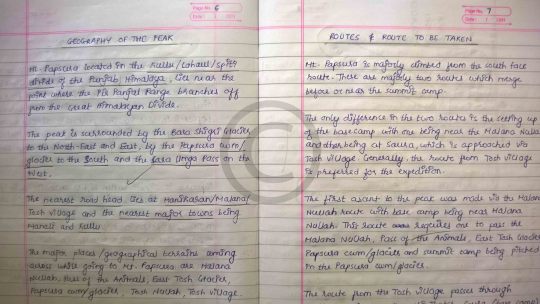 Page No. 6
Date
GEOGRAPHY OF THE PEAK
Mt. Papsura located in the Kullu/Lahaul/Spiti
divide of the Punjab Himalaya, lies near the
point where the Pir Panjal Range branches off
from the Great Himalayan Divide.
The peak is surrounded by the Bara Shigri Glacier
to the North-East and East, by the Papsura cwm/
glacier to the South and the Sara Umga Pass on the
West.
The nearest road head lies at Manikaran/Malana/
Tosh village and the nearest major towns being
Manali and Kullu
The major places/geographical terrains coming
across while going to Mt. Papsura are Malana
Nullah, Pass of the Animals, East Tosh Glacier,
Papsura cwm/glacier, Tosh Nullah, Tosh Village.
Page No. 7
Date
ROUTES & ROUTE TO BE TAKEN
Mt. Papsura is majorly climbed from the south face
route. There are majorly two routes which merge
before or near the summit camp.
The only difference in the two routes is the setting up
of the base camp with one being near the Malana Nullah
and other being at Saura, which is approached via
Tosh Village. Generally, the route from Tosh village
is preferred for the expedition.
The first ascent to the peak was made via the Malana
Nullah route with base camp being near Malana
Nallah. This route requires one to pass the
Malana Nullah, Pass of the Animals, East Tosh Glacier,
Papsura cwm/glacier and summit camp being pitched
in the Papsura cwm/glacier.
The route from the Tosh Village passes through